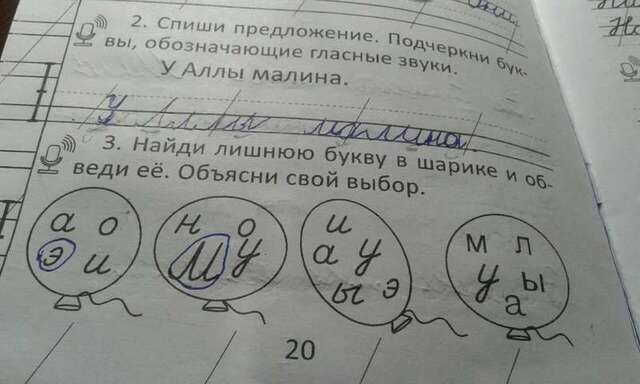 2. Спиши предложение. Подчеркни бук-
вы, обозначающие гласные звуки.
У Аллы малина.
У Аллы малина.
3. Найди лишнюю букву в шарике и об-
веди её. Объясни свой выбор.
а о
э и
н о
М у
и
а у
ы э
м л
у ы
а
20